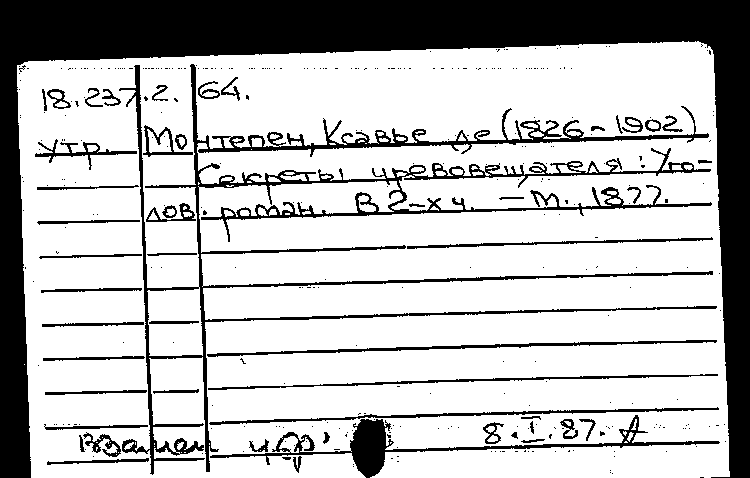 18.237.2.64.
утр. Монтепен, Ксавье де (1826-1902)
Секреты чревовещателя: Уго-
лов. роман. В 2-х ч. — М., 1877.
Взамен 8.I.87.